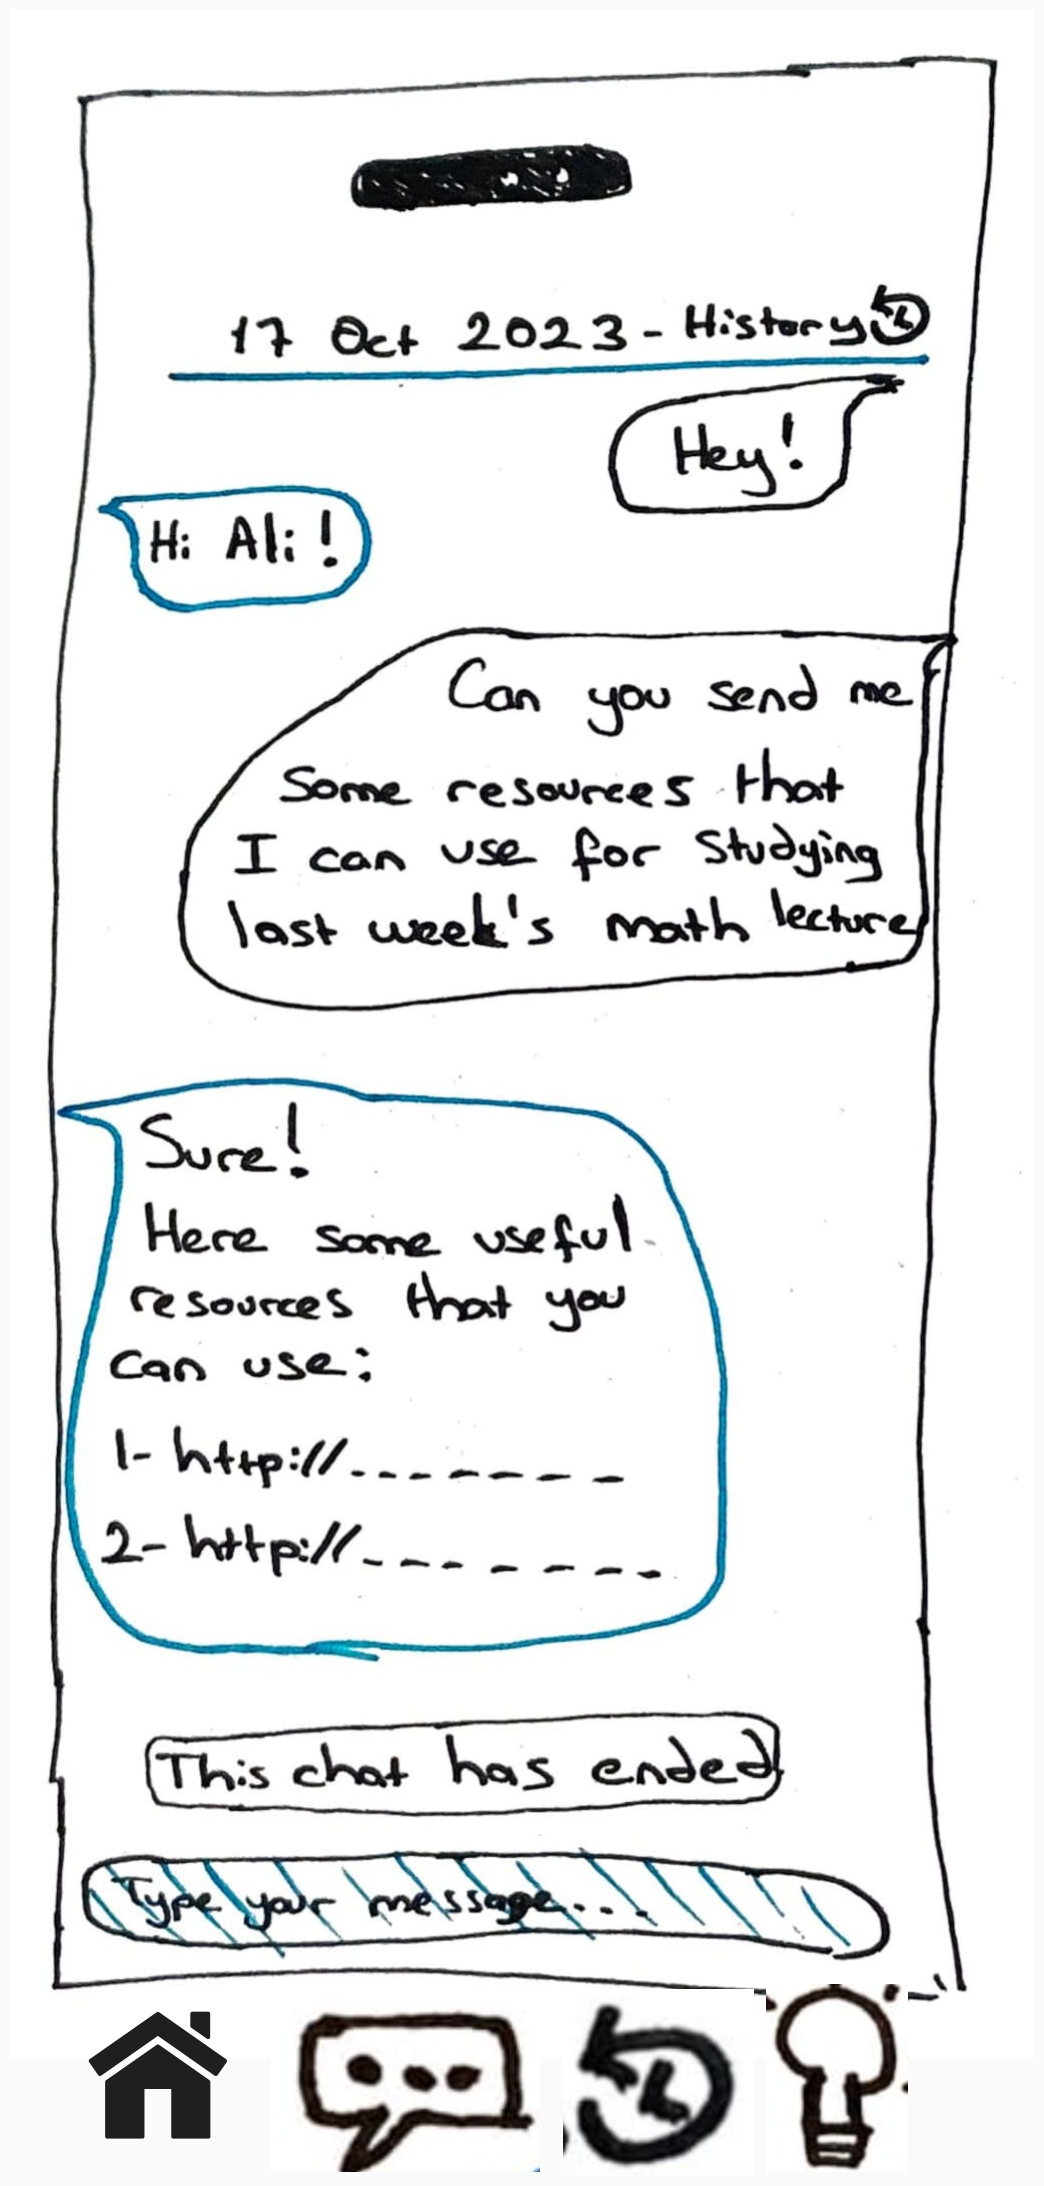 17 Oct 2023 - History
Hey!
Hi Ali!
Can you send me
Some resources that
I can use for studying
last week's math lecture
Sure!
Here some useful
resources that you
can use:
1- http://.-------
2- http://.-------
This chat has ended
Type your message...